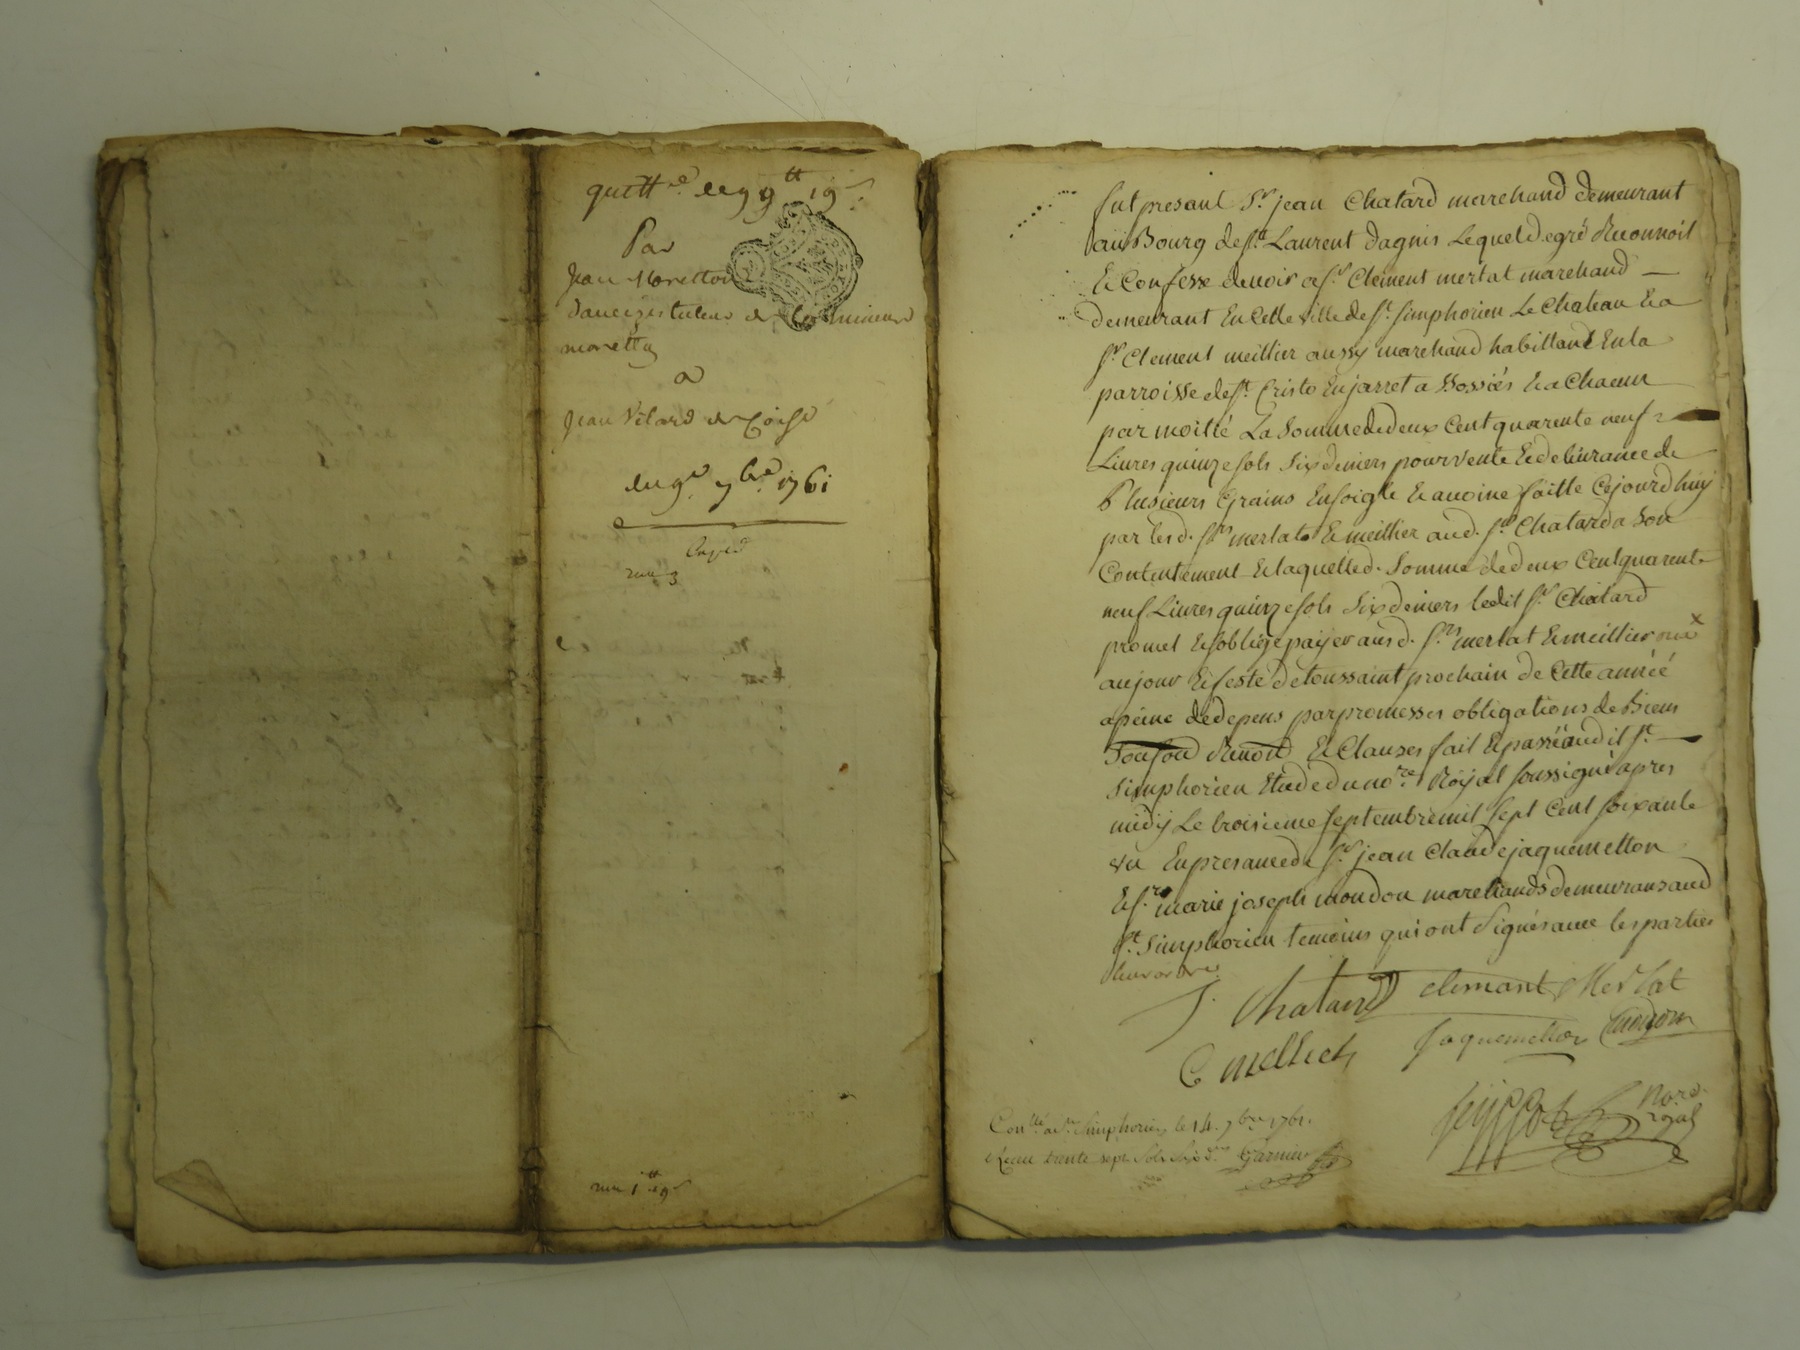 quitt.e de 99tt 19s
Par
Jean Moretton
mineurs
moretton
a
Jean Vilard de Coise
du 9e 7bre 1761
Expied
reçu 1tt 9s
fut presant Sr jean Chatard marchand demeurant
au Bourg de St Laurent dagnis Lequel de gré Reconnoit
Et Confesse devoir a Sr Clement merlat marchand
demeurant En Cette ville de St Simphorien Le Chateau Et a
Sr Clement meillier aussy marchand habittant En la
parroisse de St Cristo En jarret assossiés Et a Chacun
par moitié La Somme de deux Cent quarente neuf
Livres quinze sols Six deniers pour vente Et delivrance de
Plusieurs Grains En soigle Et avoine faitte Cejourdhuy
par lesd. Srs merlat Et meillier aud. Sr Chatard a Son
Contentement Et laquelle d. Somme de deux Cent quarente
neuf Livres quinze sols Six deniers ledit Sr Chatard
promet Et soblige payer ausd. Srs merlat Et meillier
au jour Et feste de toussaint prochain de Cette année
a peine de depens par promesses obligations de Biens
Renon Et Clauses fait Et passé audit St
Simphorien Etude du nore Royal soussigné apres
midy Le troisieme septembre mil sept Cent soixante
un En presance de Sr jean Claude jaquemetton
Et Sr marie joseph moudon marchands demeurans aud
St Simphorien temoins qui ont Signés avec les parties
J. Chatard clemant Merlat
C meillier Jaquemetton moudon
Nore royal
Conllé a St Simphorien le 14. 7bre 1761.
Reçu trente sept Sols Six d. Garnier